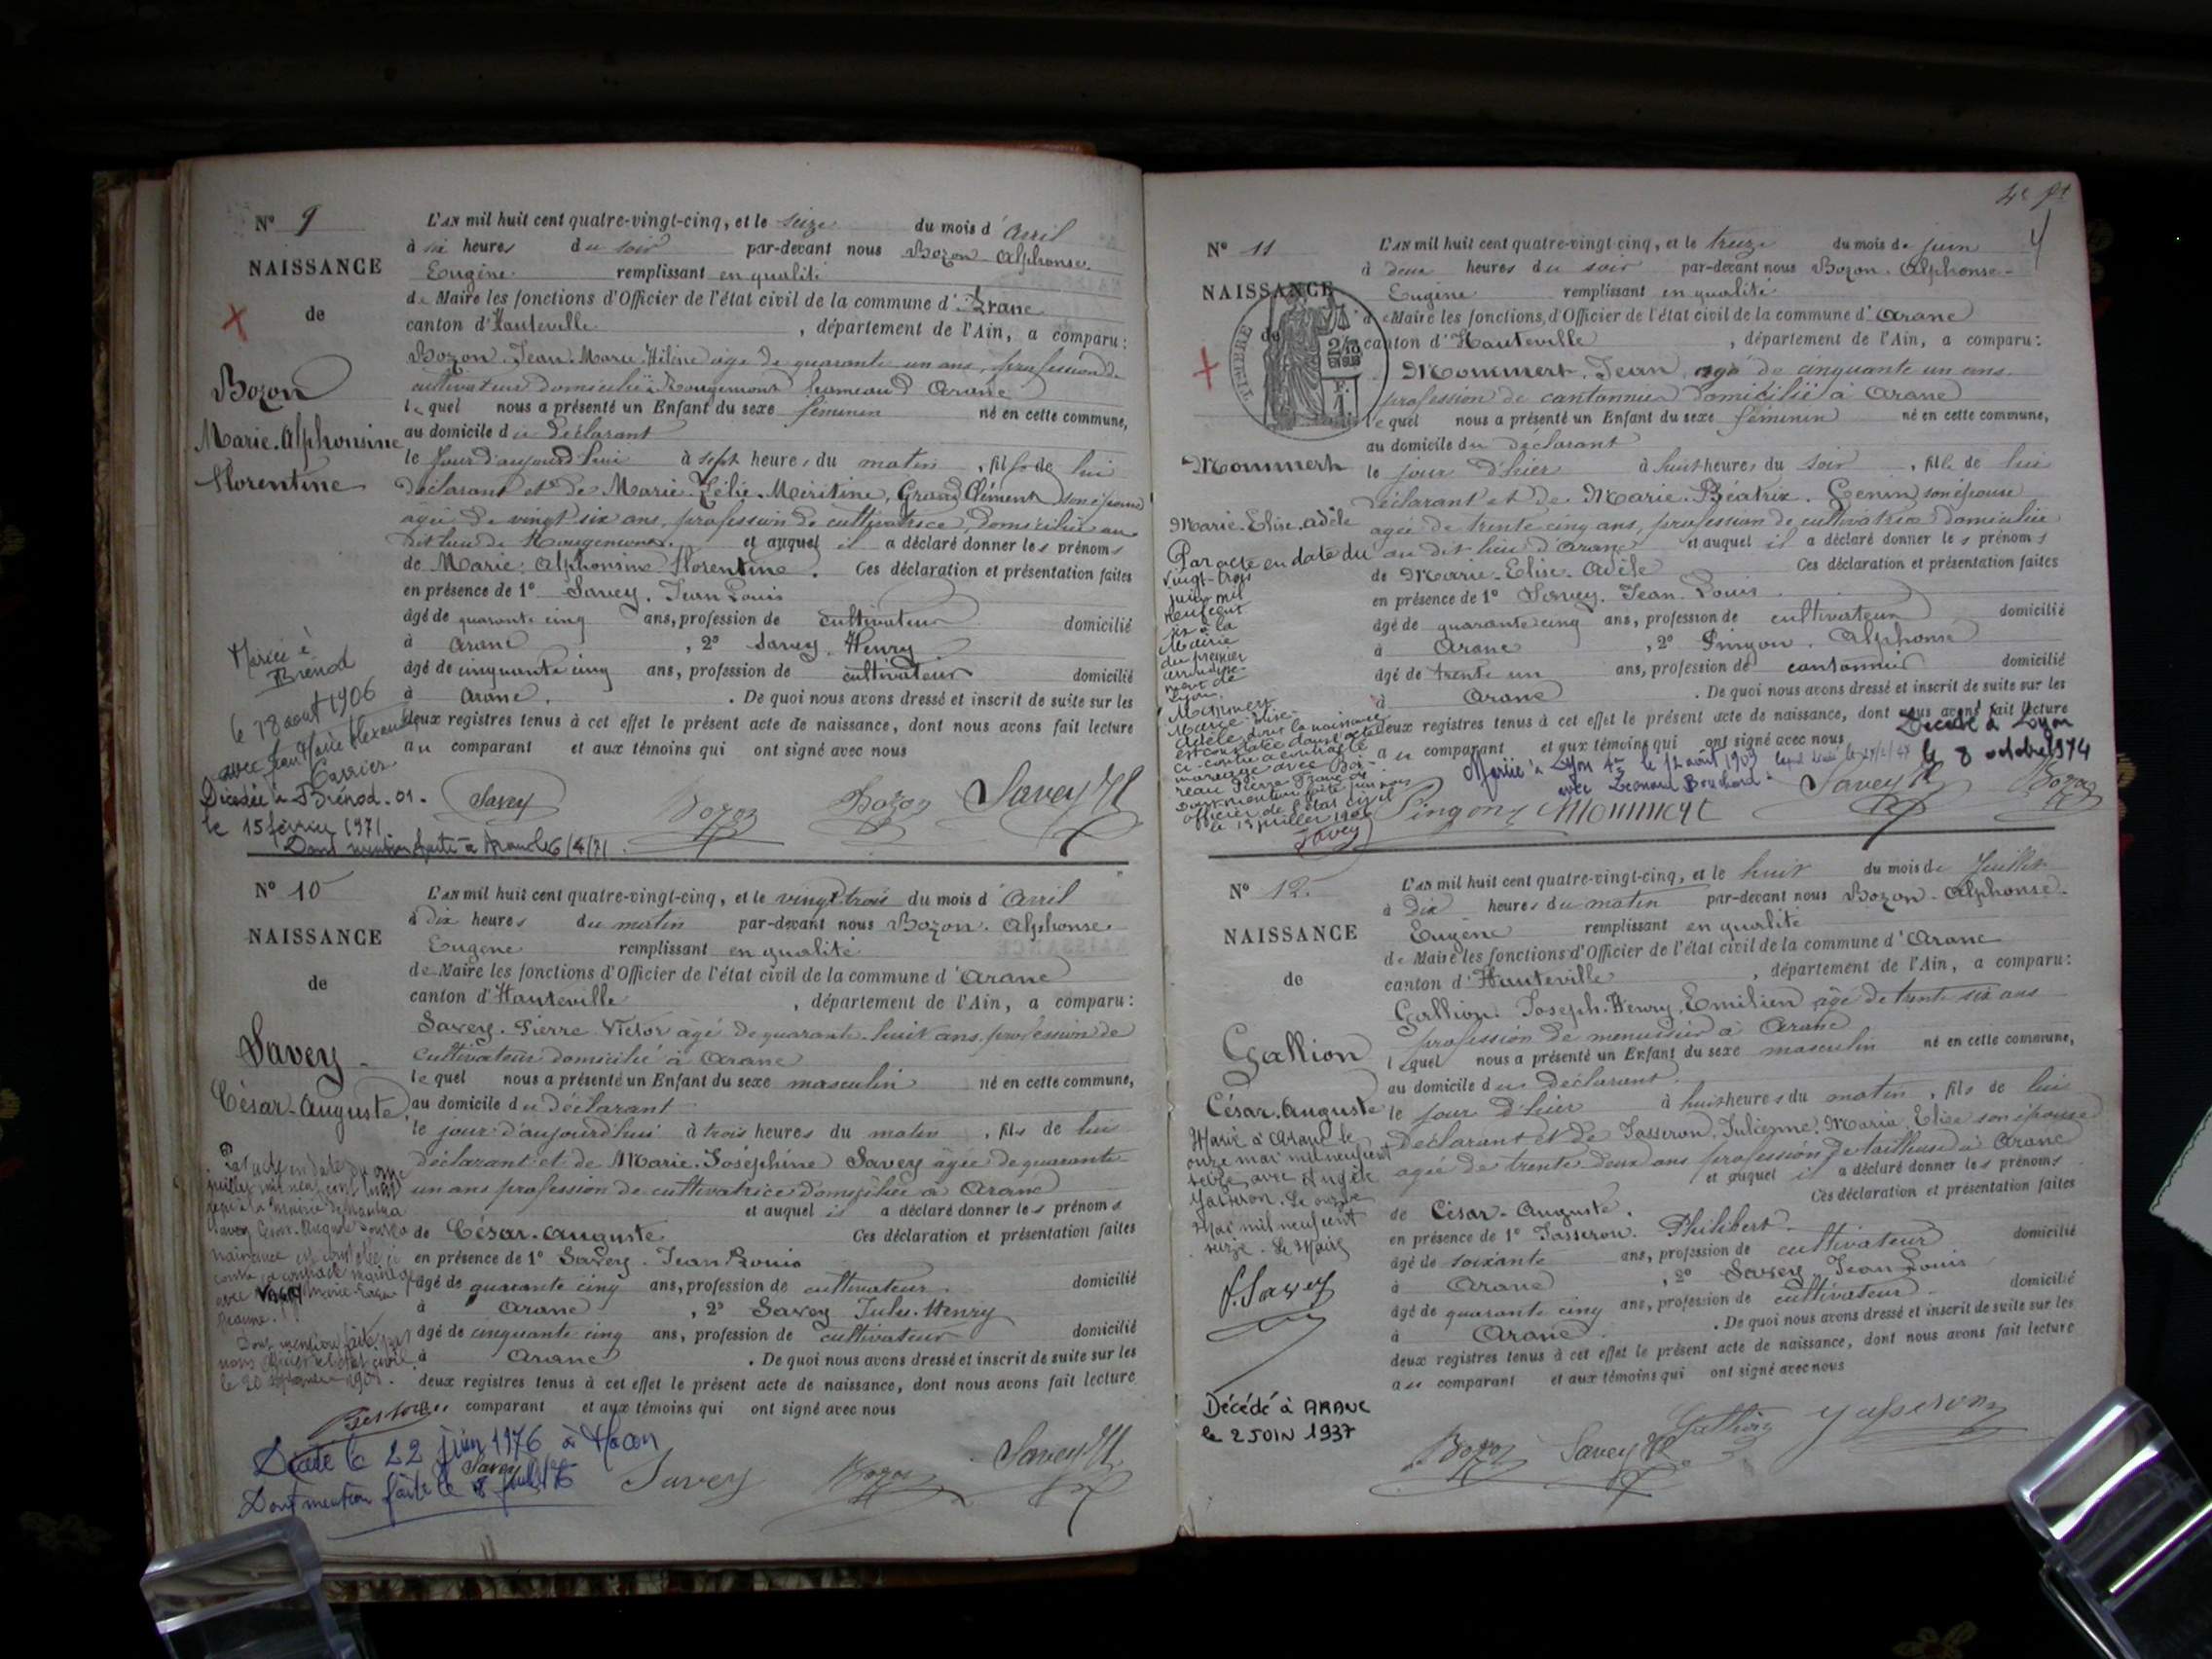 N° 9
NAISSANCE
de
Bozon
Marie-Alphonsine
Florentine
L'AN mil huit cent quatre-vingt-cinq, et le seize du mois d'Avril
à six heures du soir par-devant nous Bozon Alphonse
Eugène remplissant en qualité
de Maire les fonctions d'Officier de l'état civil de la commune d'Aranc
canton d'Hauteville, département de l'Ain, a comparu:
Bozon Jean-Marie-Hilène âgé de quarante un ans, profession de
cultivateur domicilié à Rougemont hameau d'Aranc
lequel nous a présenté un Enfant du sexe féminin né en cette commune,
au domicile du déclarant
le jour d'aujourd'hui à sept heures du matin, fils de lui
déclarant et de Marie-Zélie-Méritine, Grand Clément son épouse
agée de vingt six ans, profession de cultivatrice, domiciliée au
dit lieu de Rougemont. et auquel il a déclaré donner les prénoms
de Marie Alphonsine Florentine. Ces déclaration et présentation faites
en présence de 1° Savey, Jean Louis
âgé de quarante cinq ans, profession de cultivateur domicilié
à Aranc, 2° Savey, Henry
âgé de cinquante cinq ans, profession de cultivateur domicilié
à Aranc. De quoi nous avons dressé et inscrit de suite sur les
deux registres tenus à cet effet le présent acte de naissance, dont nous avons fait lecture
au comparant et aux témoins qui ont signé avec nous
Mariée à
Brénod
le 18 août 1906
avec Jean Marie Alexandre
Carrier
Décédée à Brénod-01-
le 15 février 1971
Dont mention faite à Aranc le 6/4/71.
Savey Bozon Bozon Savey H
N° 10
NAISSANCE
de
Savey
César-Auguste
L'AN mil huit cent quatre-vingt-cinq, et le vingt trois du mois d'Avril
à dix heures du matin par-devant nous Bozon. Alphonse.
Eugène remplissant en qualité
de Maire les fonctions d'Officier de l'état civil de la commune d'Aranc
canton d'Hauteville, département de l'Ain, a comparu:
Savey. Pierre Victor âgé de quarante huit ans, profession de
cultivateur domicilié à Aranc
lequel nous a présenté un Enfant du sexe masculin né en cette commune,
au domicile du déclarant
le jour d'aujourd'hui à trois heures du matin, fils de lui
déclarant et de Marie-Joséphine Savey âgée de quarante
un ans profession de cultivatrice domiciliée à Aranc
et auquel il a déclaré donner les prénoms
de César-Auguste Ces déclaration et présentation faites
en présence de 1° Savey. Jean Louis
âgé de quarante cinq ans, profession de cultivateur domicilié
à Aranc, 2° Savey Jules-Henry
âgé de cinquante cinq ans, profession de cultivateur domicilié
à Aranc. De quoi nous avons dressé et inscrit de suite sur les
deux registres tenus à cet effet le présent acte de naissance, dont nous avons fait lecture
au comparant et aux témoins qui ont signé avec nous
Par acte en date du onze
juillet mil neuf cent
Savey César-Auguste dont la
naissance est constatée ci
contre a contracté mariage
avec Marie
Jeanne.
Dont mention faite par
nous officier de l'état civil
Décédé le 22 juin 1976 à Macon
Dont mention faite le 8 juil 76
Savey
Savey Bozon Savey H
4e ft
N° 11
NAISSANCE
de
TIMBRE
Mommert
Marie-Elise-Adèle
L'AN mil huit cent quatre-vingt-cinq, et le treize du mois de juin
à deux heures du soir par-devant nous Bozon. Alphonse-
Eugène remplissant en qualité
de Maire les fonctions d'Officier de l'état civil de la commune d'Aranc
canton d'Hauteville, département de l'Ain, a comparu:
Mommert, Jean, agé de cinquante un ans.
profession de cantonnier domicilié à Aranc
lequel nous a présenté un Enfant du sexe féminin né en cette commune,
au domicile du déclarant
le jour d'hier à huit heures du soir, fille de lui
déclarant et de Marie-Béatrix. Genin son épouse
agée de trente cinq ans, profession de cultivatrice domiciliée
au dit lieu d'Aranc et auquel il a déclaré donner les prénoms
de Marie-Elise-Adèle Ces déclaration et présentation faites
en présence de 1° Savey. Jean-Louis
âgé de quarante cinq ans, profession de cultivateur domicilié
à Aranc, 2° Pingon, Alphonse
âgé de trente un ans, profession de cantonnier domicilié
à Aranc. De quoi nous avons dressé et inscrit de suite sur les
deux registres tenus à cet effet le présent acte de naissance, dont nous avons fait lecture
au comparant et aux témoins qui ont signé avec nous
Par acte en date du
vingt-trois
juin mil
neuf cent
six à la
Mairie
du premier
arrondisse-
ment de
Lyon,
Mommert
Marie-Elise-
Adèle dont la naissance
est constatée dans l'acte
ci-contre a contracté
mariage avec Boi-
reau Pierre François
Dont mention faite par nous
officier de l'état civil
le 13 juillet 1906
Savey
Décédé à Lyon
le 8 octobre 1974
Mariée à Lyon 4e le 12 août 1909
avec Léonard Bouchard
Pingon Mommert Savey H Bozon
N° 12.
NAISSANCE
de
Gallion
César-Auguste
L'AN mil huit cent quatre-vingt-cinq, et le huit du mois de Juillet
à dix heures du matin par-devant nous Bozon-Alphonse-
Eugène remplissant en qualité
de Maire les fonctions d'Officier de l'état civil de la commune d'Aranc
canton d'Hauteville, département de l'Ain, a comparu:
Gallion. Joseph-Henry-Emilien âgé de trente six ans
profession de menuisier à Aranc
lequel nous a présenté un Enfant du sexe masculin né en cette commune,
au domicile du déclarant
le jour d'hier à huit heures du matin, fils de lui
déclarant et de Jasseron, Julienne, Maria, Elise son épouse
agée de trente deux ans profession de tailleuse à Aranc
et auquel il a déclaré donner les prénoms
de César-Auguste. Ces déclaration et présentation faites
en présence de 1° Jasseron. Philibert
âgé de soixante ans, profession de cultivateur domicilié
à Aranc, 2° Savey Jean Louis
âgé de quarante cinq ans, profession de cultivateur domicilié
à Aranc. De quoi nous avons dressé et inscrit de suite sur les
deux registres tenus à cet effet le présent acte de naissance, dont nous avons fait lecture
au comparant et aux témoins qui ont signé avec nous
Marié à Aranc le
onze mai mil neuf cent
seize, avec Angèle
Jasseron. Le onze
Mai mil neuf cent
seize. Le Maire
Savey
Décédé à ARANC
le 2 JUIN 1937
Bozon Savey H Gallion Jasseron